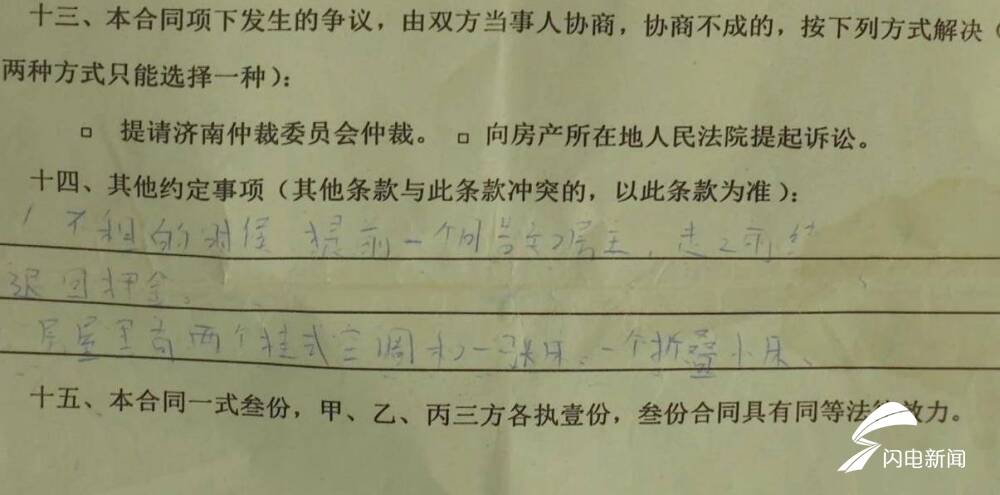 十三、本合同项下发生的争议，由双方当事人协商，协商不成的，按下列方式解决（
两种方式只能选择一种）：
□ 提请济南仲裁委员会仲裁。 □ 向房产所在地人民法院提起诉讼。
十四、其他约定事项（其他条款与此条款冲突的，以此条款为准）：
1 不租的时候 提前一个月告知房主，走之前
退回押金。
房屋里有两个挂式空调和一张床、一个折叠小床、
十五、本合同一式叁份，甲、乙、丙三方各执壹份，叁份合同具有同等法律效力。
闪电新闻